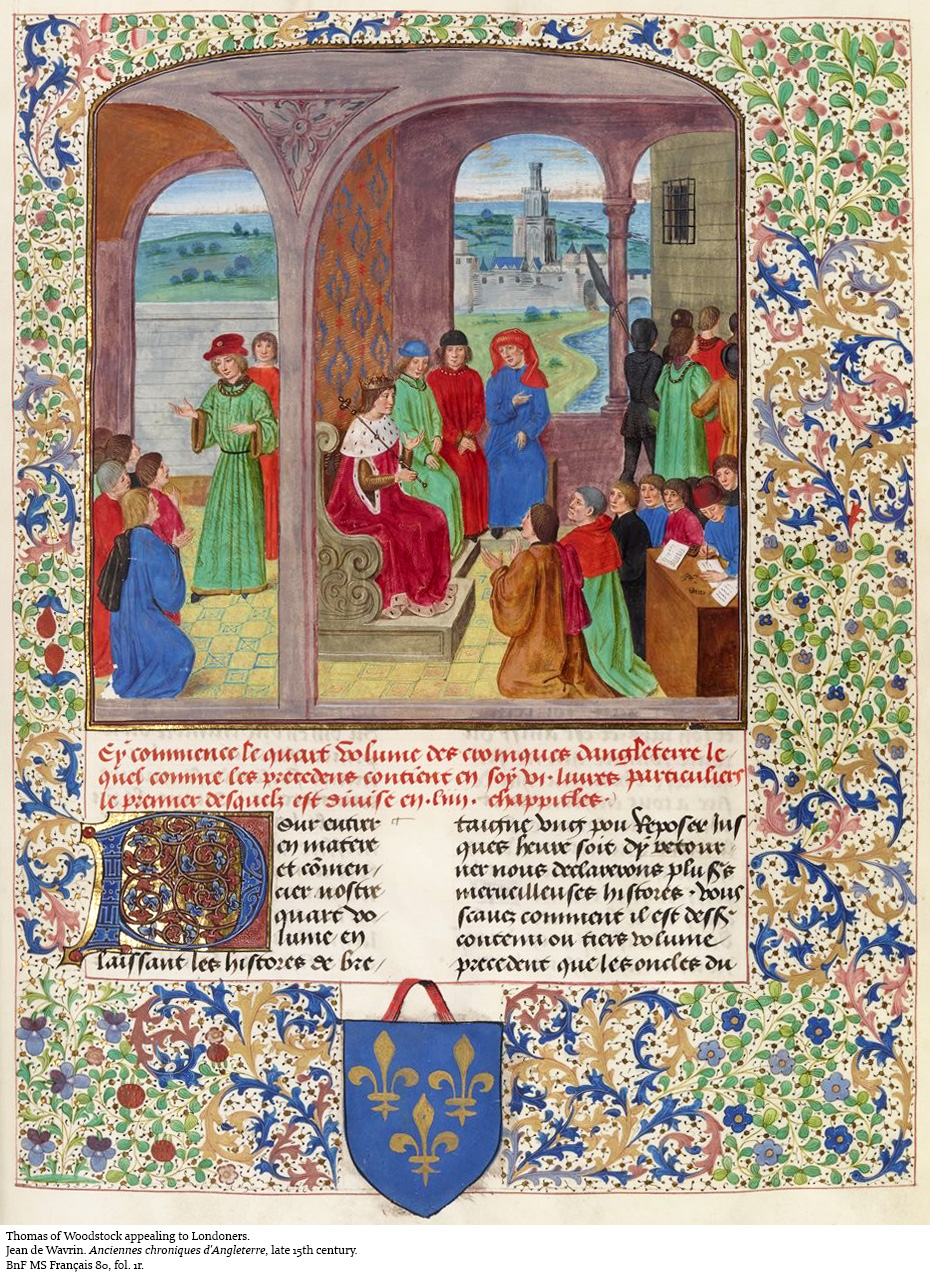 Cy commence le quart volume des croniques dangleterre le
quel comme les precedens contient en soy .vi. liures particuliers
le premier desquelz est diuise en .liiii. chappitles.
Pour entrer
en matere
et cōmen/
cier nostre
quart vo/
lume en
laissant les histores de bre/
taigne vng pou Reposer Jus
ques heure soit dy retour/
ner nous declarerons
merueilleuses histores . Vous
scauez comment il est
contenu ou tiers volume
precedent que les oncles du
Thomas of Woodstock appealing to Londoners.
Jean de Wavrin. Anciennes chroniques d'Angleterre, late 15th century.
BnF MS Français 80, fol. 1r.